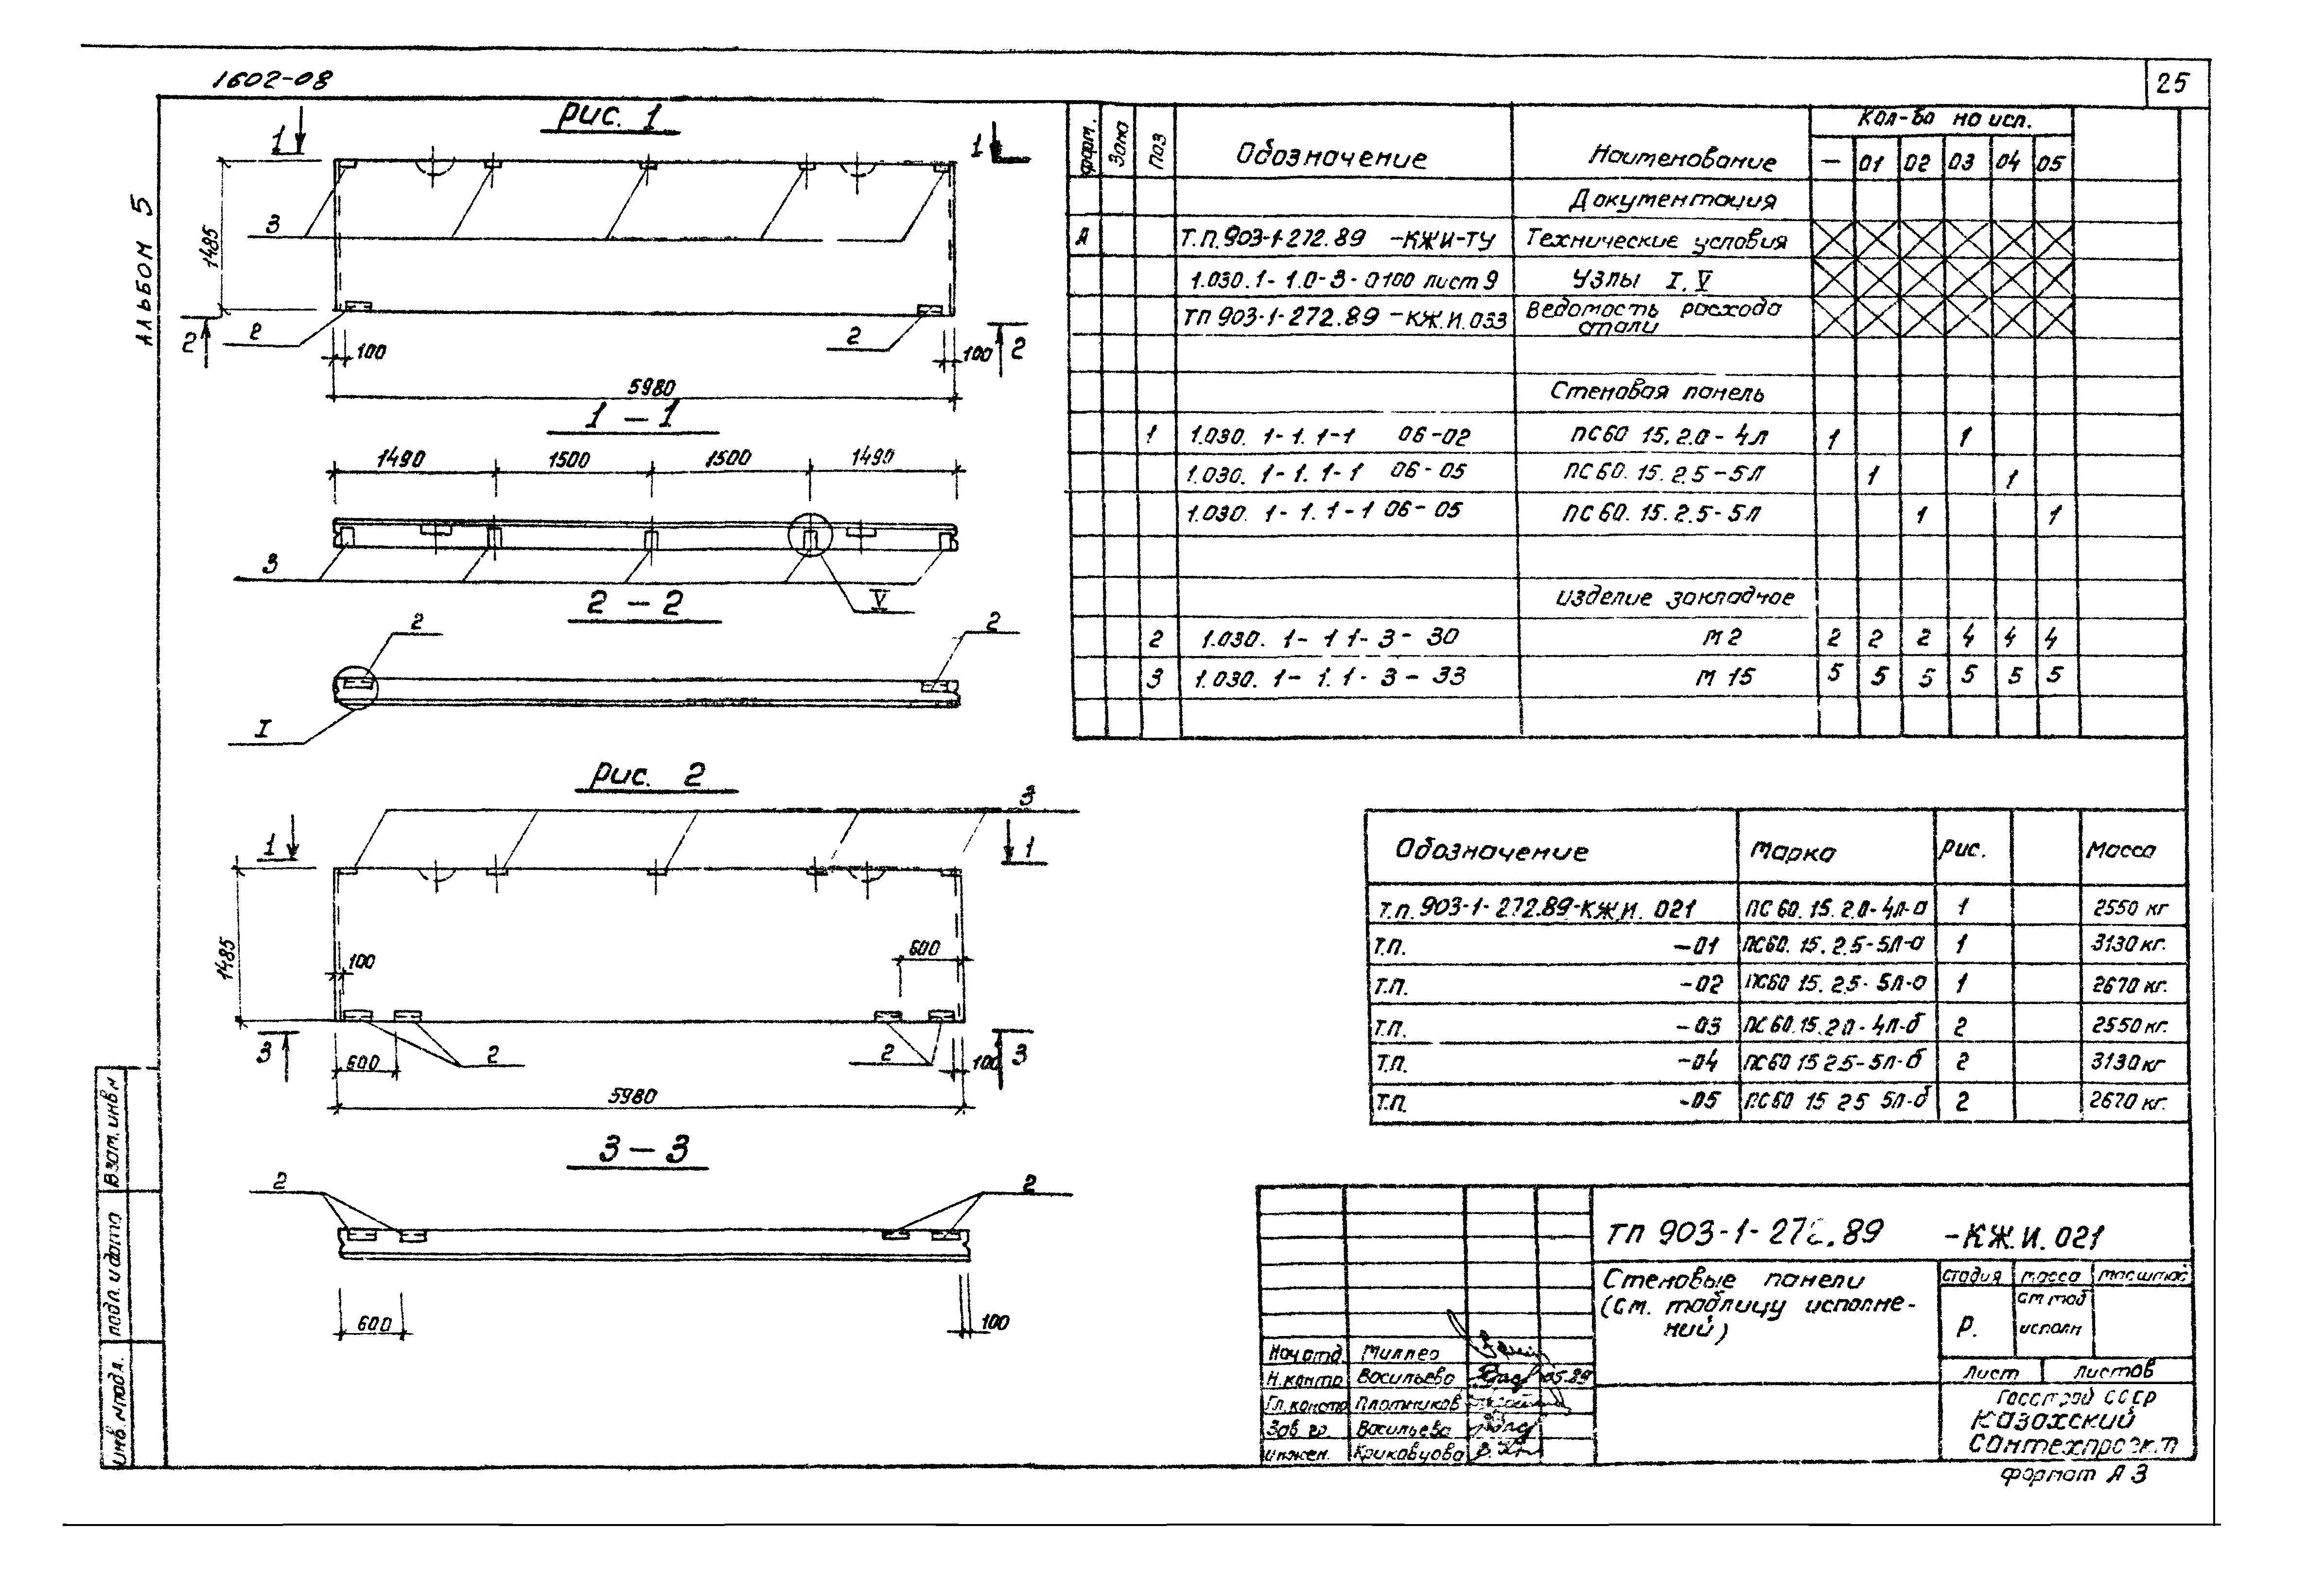 1602-08
25
АЛЬБОМ 5
Рис. 1
1
1
3
1485
2
2
2
2
100
100
5980
1 – 1
1490 1500 1500 1490
3
V
2 – 2
2
2
I
Рис. 2
3
1
1
1485
100
600
3
600
2
2
100
3
5980
3 – 3
2
2
600
100
форм. Зона Поз Обозначение Наименование Кол-во на исп.
– 01 02 03 04 05
Документация
А Т.П.903-1-272.89 -КЖИ-ТУ Технические условия
1.030.1-1.0-3-0100 лист 9 Узлы I, V
ТП 903-1-272.89 -КЖ.И.033 Ведомость расхода стали
Стеновая панель
1 1.030. 1-1.1-1 06-02 ПС60 15.2.0-4л 1 1
1.030. 1-1.1-1 06-05 ПС60.15.2.5-5Л 1 1
1.030. 1-1.1-1 06-05 ПС60.15.2.5-5Л 1 1
Изделие закладное
2 1.030. 1-1 1-3-30 М2 2 2 2 4 4 4
3 1.030. 1-1.1-3-33 М 15 5 5 5 5 5 5
Обозначение Марка Рис. Масса
Т.П.903-1-272.89-КЖ.И. 021 ПС60.15.2.0-4Л-а 1 2550 кг
Т.П. -01 ПС60.15.2.5-5Л-а 1 3130 кг.
Т.П. -02 ПС60 15.2.5-5Л-а 1 2670 кг.
Т.П. -03 ПС60.15.20-4Л-б 2 2550 кг.
Т.П. -04 ПС60 15 2.5-5Л-б 2 3130 кг
Т.П. -05 ПС60 15 25 5Л-б 2 2670 кг.
ТП 903-1-272.89 -КЖ.И. 021
Стеновые панели
(см. таблицу исполне-
ний)
стадия масса масштаб
Р. см таб
исполн
Лист Листов
Госстрой СССР
Казахский
Сантехпроект
Нач.отд. Миллео
Н.контр Васильева 05.89
Гл.констр Плотников
Зав гр. Васильева
инжен. Криковцова
формат А3
Взам. инв.№
подп. и дата
инв.№подл.